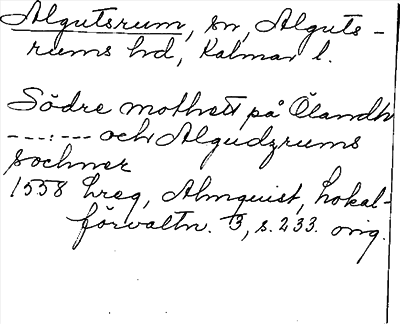 Algutsrum, sn, Alguts-
rums hd, Kalmar l.
Södre mothett på Ölandh
---:--- och Algudzrums
sochner
1558 Lreg, Almquist, Lokal-
förvaltn. 3, s. 233. orig.